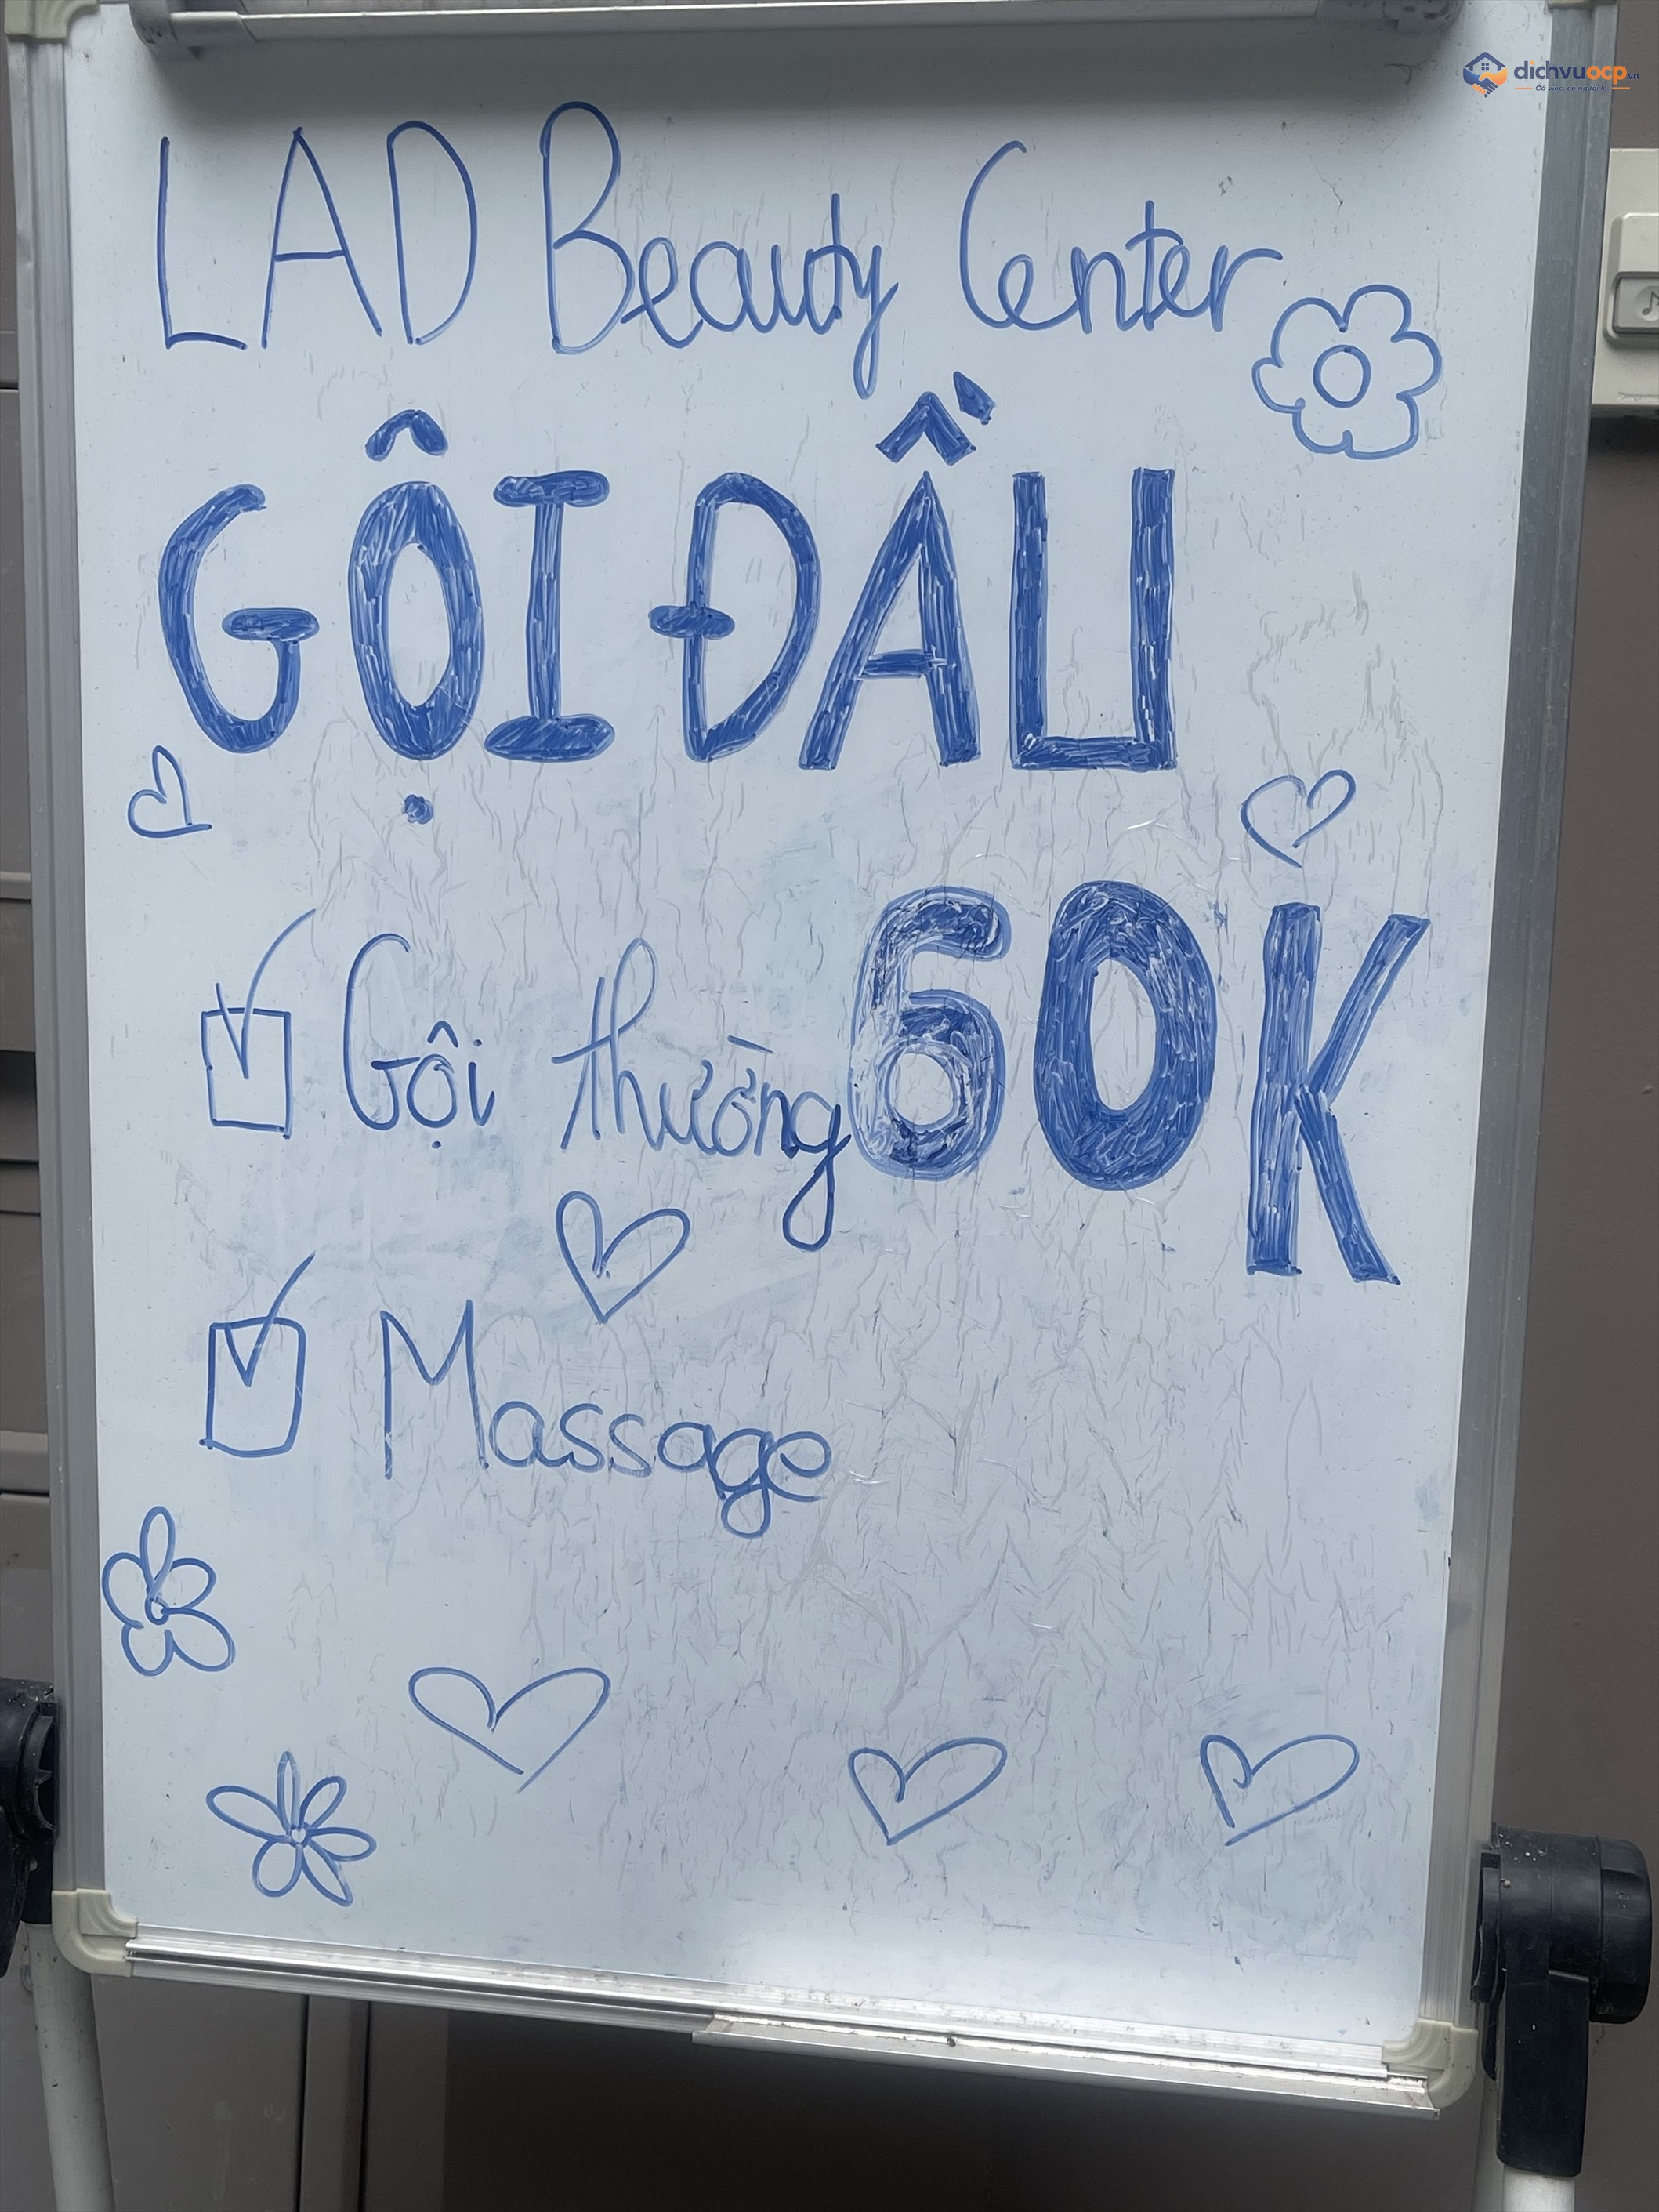 dichvuocp.vn
Có việc, có người lo
LAD Beauty Center
GỘI ĐẦU
Gội thường 60K
Massage